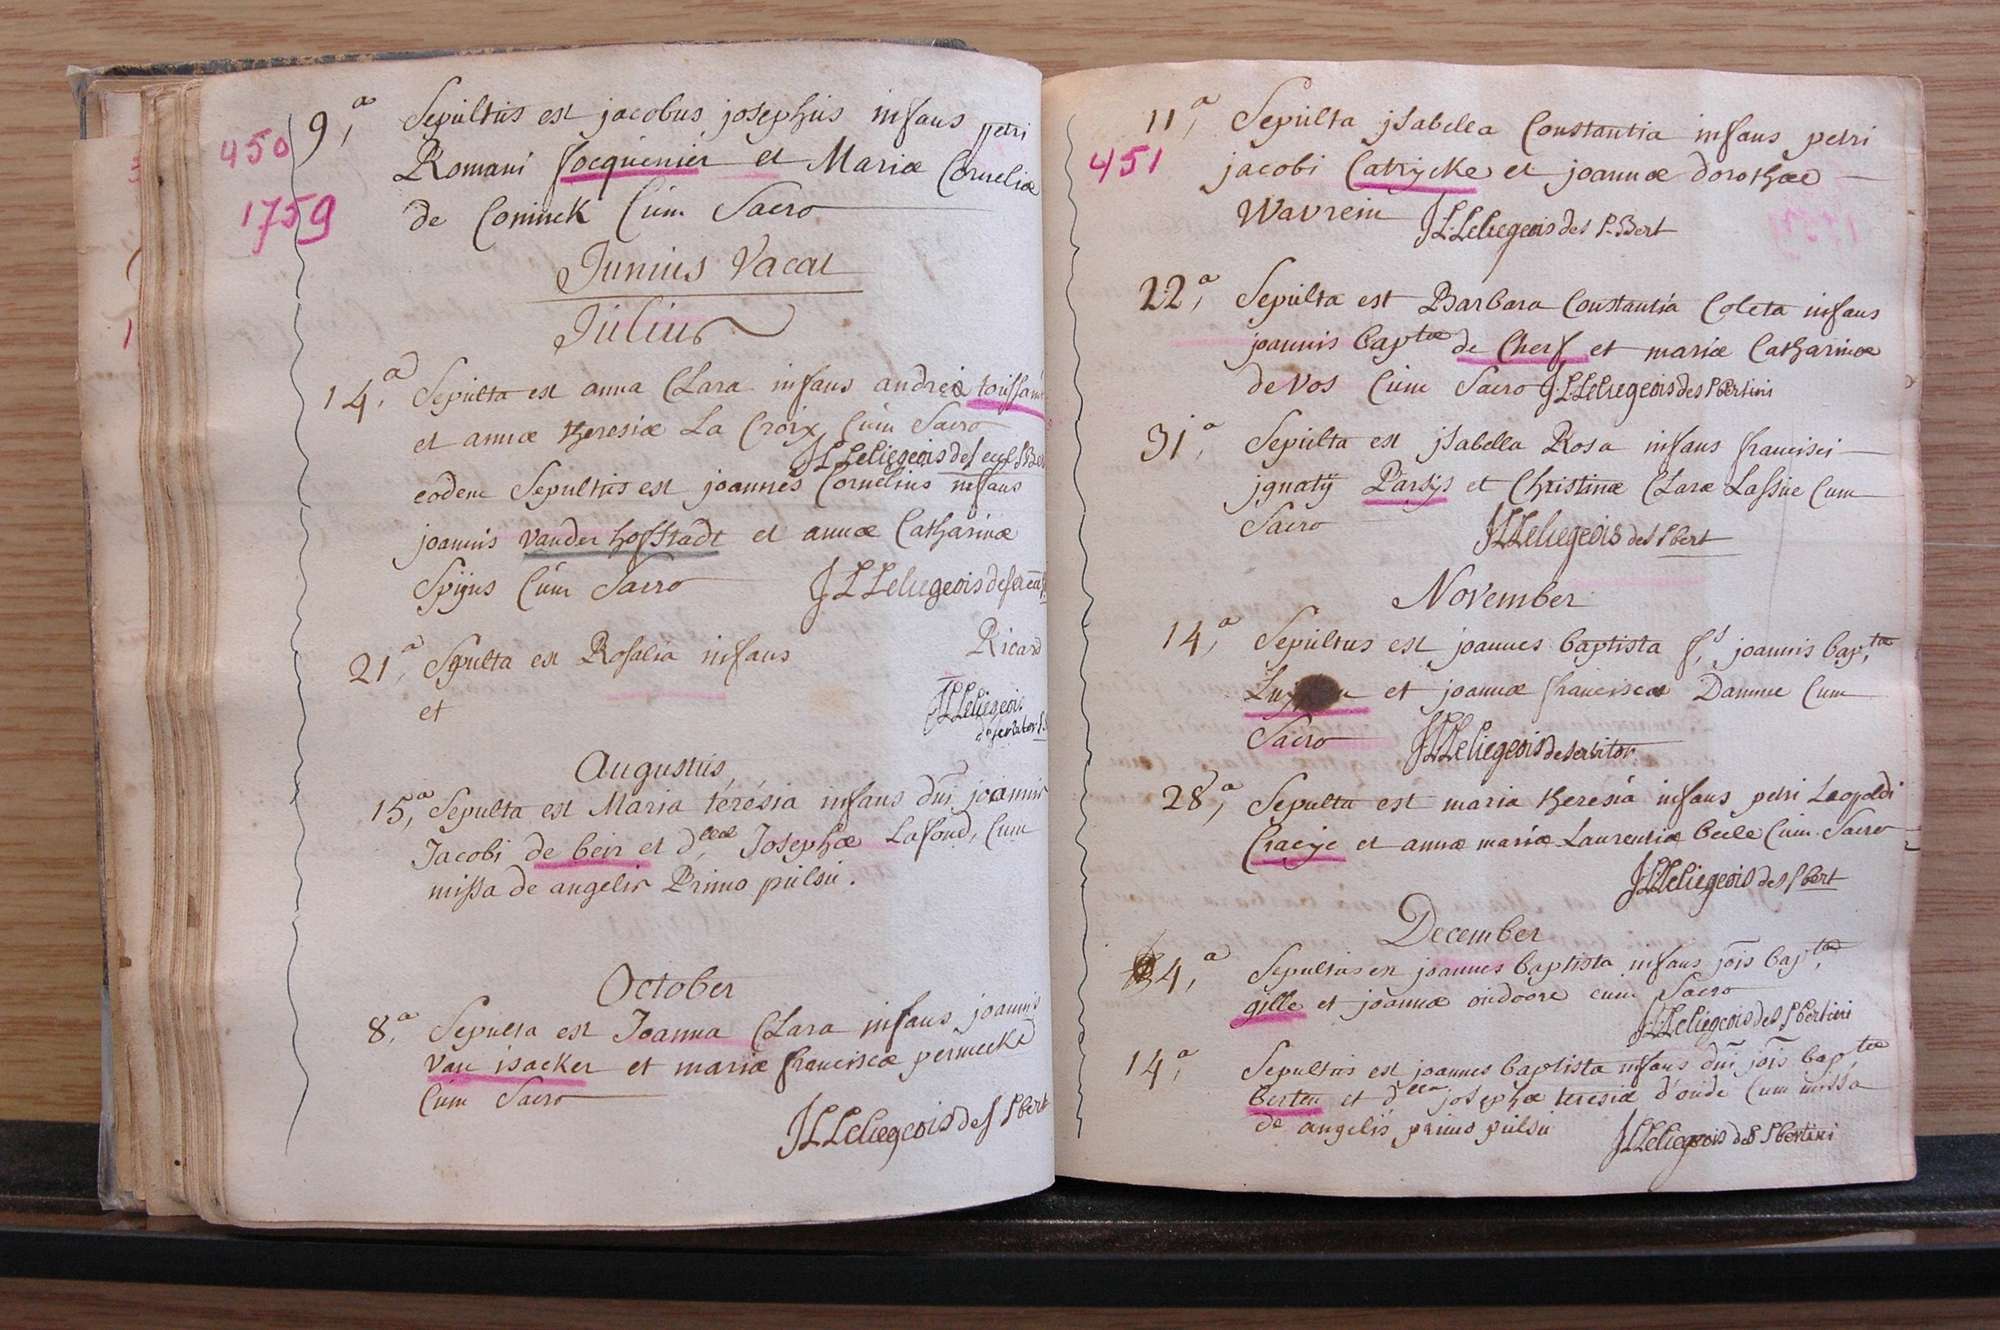 450
1759
9,a Sepultus est jacobus josephus infans petri
Romani Jocquenier et Mariæ Corneliæ
de Coninck Cum Sacro
Junius Vacat
Julius
14,a Sepulta est anna Clara infans andreæ toussain
et annæ theresiæ La Croix Cum Sacro
JLLeliegeois
eodem Sepultus est joannes Cornelius infans
joannis vander hofstadt et annæ Catharinæ
Spijns Cum Sacro JLLeliegeois
21,a Sepulta est Rosalia infans Ricard
et JLLeliegeois
deservitor
Augustus
15,a Sepulta est Maria térésia infans dni joannis
Jacobi de beir et d,llæ Josephæ Lafond, Cum
missa de angelis Primo pulsu.
October
8,a Sepulta est Joanna Clara infans joannis
Van isacker et mariæ franciscæ permeeke
Cum Sacro
JLLeliegeois des Sbert
451
11,a Sepulta jsabella Constantia infans petri
jacobi Catrycke et joannæ dorothæe
Wavrein JLLeliegeois des S-Bert
22,a Sepulta est Barbara Constantia Coleta infans
joannis baptæ de Cherf et mariæ Catharinæ
de Vos Cum Sacro JLLeliegeois des Sbertini
31,a Sepulta est jsabella Rosa infans francisci
jgnatij Parsijs et Christinæ Claræ Lassue Cum
Sacro JLLeliegeois des Sbert
November
14,a Sepultus est joannes baptista f,s joannis bap,tæ
et joannæ franciscæ Damme Cum
Sacro JLLeliegeois deservitor
28,a Sepulta est maria theresia infans petri Leopoldi
Craeye et annæ mariæ Laurentiæ beele Cum Sacro
JLLeliegeois des Sbert
December
4,a Sepultus est joannes baptista infans jois bap,tæ
gille et joannæ oudoore cum Sacro
JLLeliegeois des Sbertini
14,a Sepultus est joannes baptista infans dni jois baptæ
berten et d,lla josephæ teresiæ d'onde Cum missa
de angelis primo pulsu JLLeliegeois des Sbertini